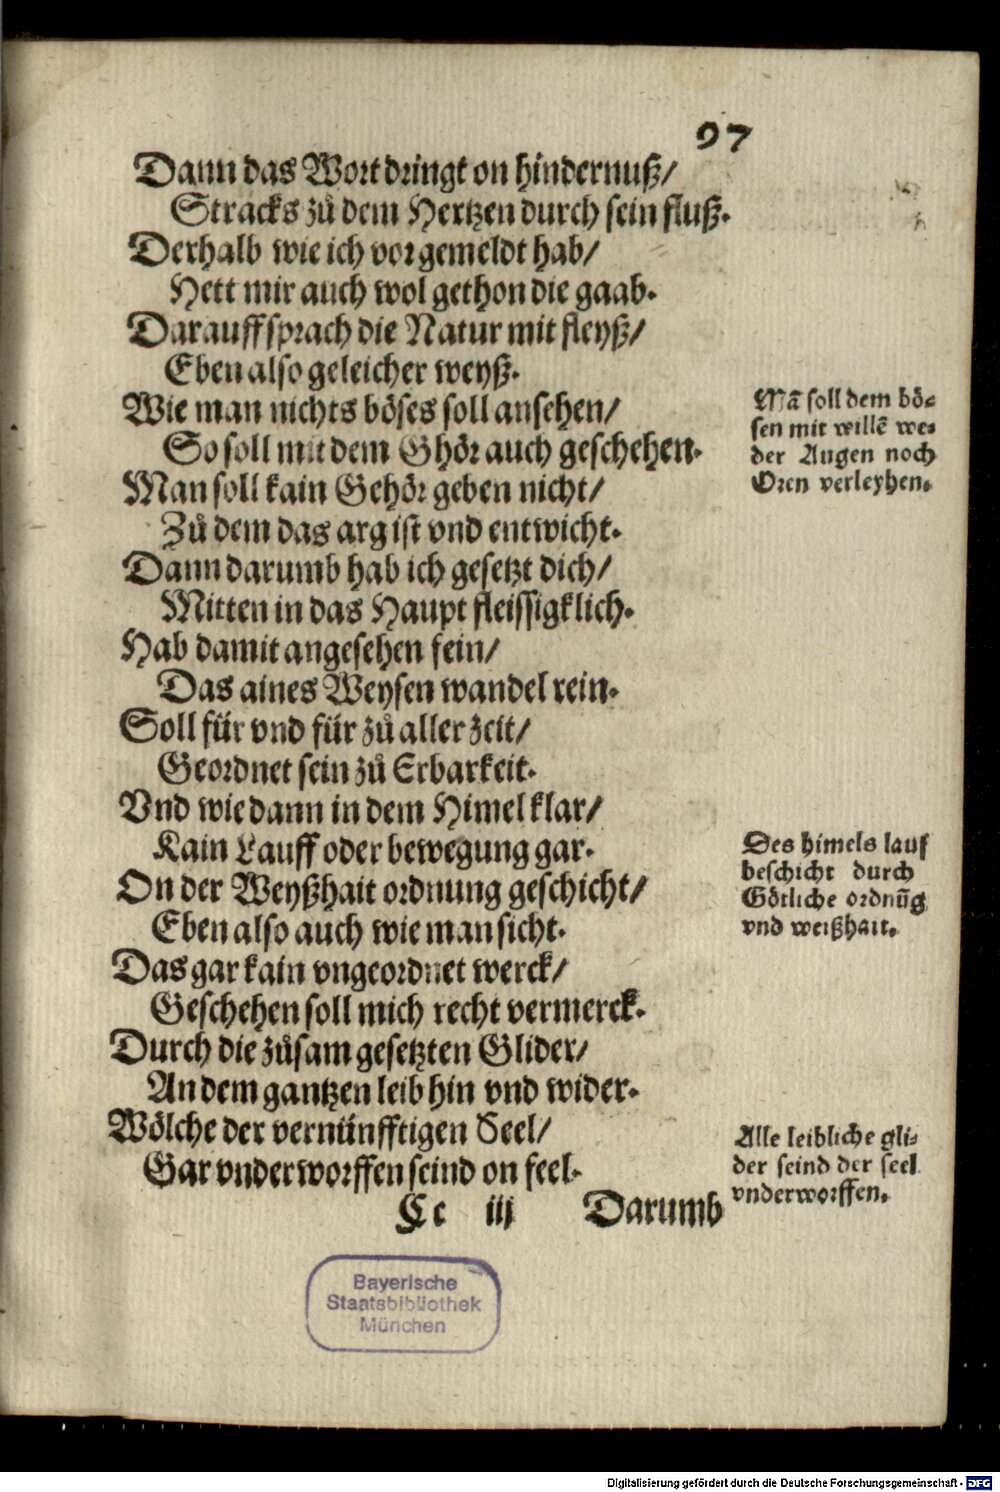 97
Dann das Wort dringt on hindernuß/
Stracks zů dem Hertzen durch sein fluß.
Derhalb wie ich vor gemeldt hab/
Hett mir auch wol gethon die gaab.
Darauff sprach die Natur mit fleyß/
Eben also geleicher weyß.
Wie man nichts böses soll ansehen/
So soll mit dem Ghör auch geschehen.
Man soll kain Gehör geben nicht/
Zů dem das arg ist vnd entwicht.
Dann darumb hab ich gesetzt dich/
Mitten in das Haupt fleissigklich.
Hab damit angesehen fein/
Das aines Weysen wandel rein.
Soll für vnd für zů aller zeit/
Geordnet sein zů Erbarkeit.
Vnd wie dann in dem Himel klar/
Kain Lauff oder bewegung gar.
On der Weyßhait ordnung geschicht/
Eben also auch wie man sicht.
Das gar kain vngeordnet werck/
Geschehen soll mich recht vermerck.
Durch die zůsam gesetzten Glider/
An dem gantzen leib hin vnd wider.
Wölche der vernünfftigen Seel/
Gar vnderworffen seind on feel.
Cc iij Darumb
Mã soll dem bö-
sen mit willẽ we-
der Augen noch
Oren verleyhen.
Des himels lauf
beschicht durch
Götliche ordnũg
vnd weißhait.
Alle leibliche gli-
der seind der seel
vnderworffen.
Bayerische
Staatsbibliothek
München
Digitalisierung gefördert durch die Deutsche Forschungsgemeinschaft - DFG